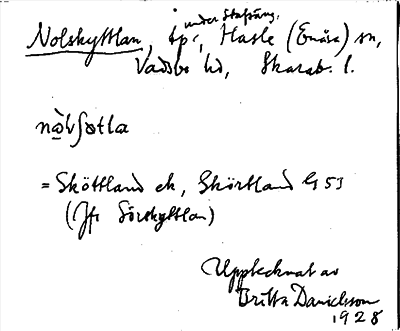 under Stafsäng.
Nolskyttlan, tp i, Hasle (Enåsa) sn,
Vadsbo hd, Skarab. l.
nòlʃɵtla
= Sköttland ek, Skörtland G 53
(Jfr Sörskyttlan)
Upptecknat av
Britta Danielsson
1928